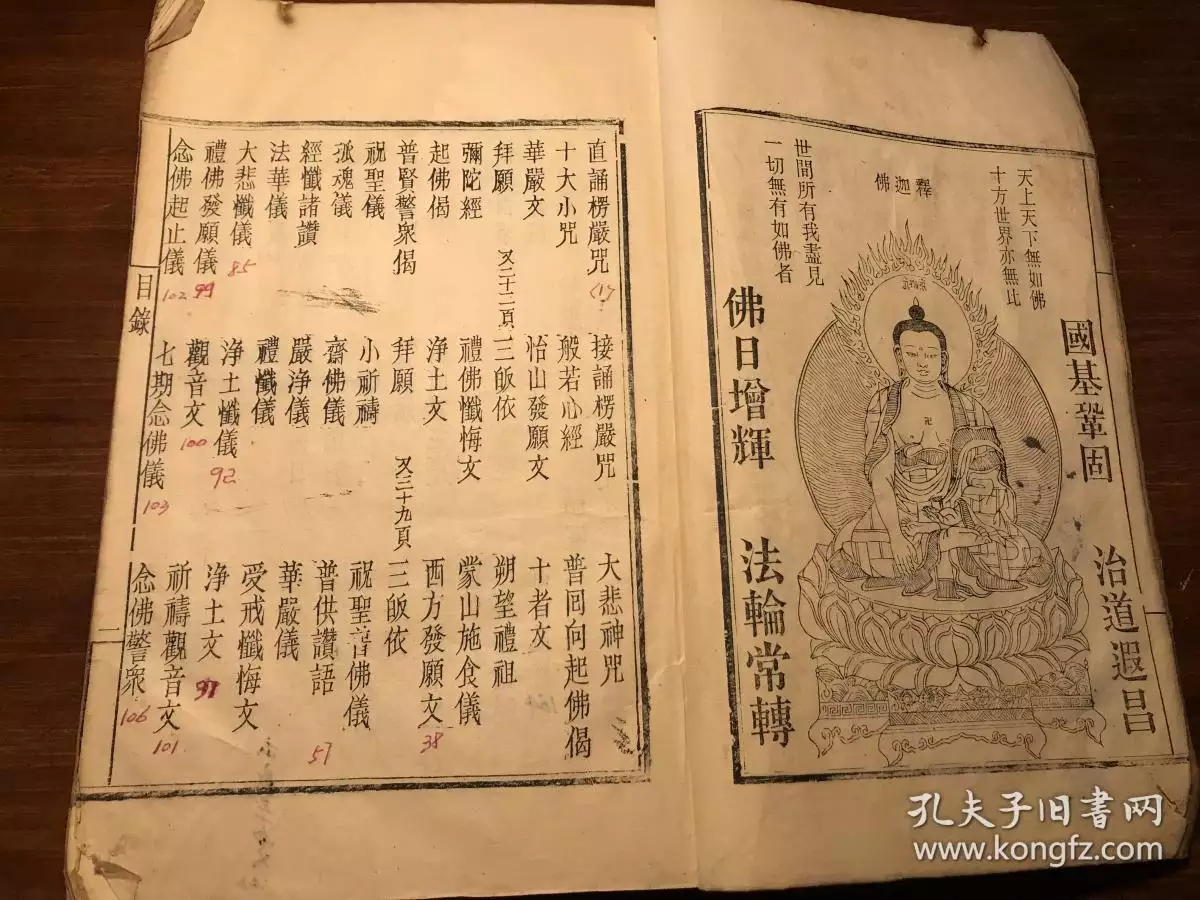 天上天下無如佛
十方世界亦無比
釋迦佛
世間所有我盡見
一切無有如佛者
國基鞏固
治道遐昌
佛日增輝
法輪常轉
卍
直誦楞嚴咒 (17
接誦楞嚴咒
大悲神咒
十大小咒
般若心經
普回向起佛偈
華嚴文
怡山發願文
十者文
拜願 又二十二頁
三皈依
朔望禮祖
彌陀經
禮佛懺悔文
蒙山施食儀
起佛偈
淨土文
西方發願文 38
普賢警衆偈
拜願 又三十九頁
三皈依
祝聖儀
小祈禱
祝聖普佛儀
孤魂儀
齋佛儀
普供讚語 57
經懺諸讚
嚴淨儀
華嚴儀
法華儀
禮懺儀
受戒懺悔文
大悲懺儀 85
淨土懺儀 92
淨土文 97
禮佛發願儀 99
觀音文 100
祈禱觀音文 101
念佛起止儀 102
七期念佛儀 103
念佛警眾 106
目錄
二
孔夫子旧书网
www.kongfz.com